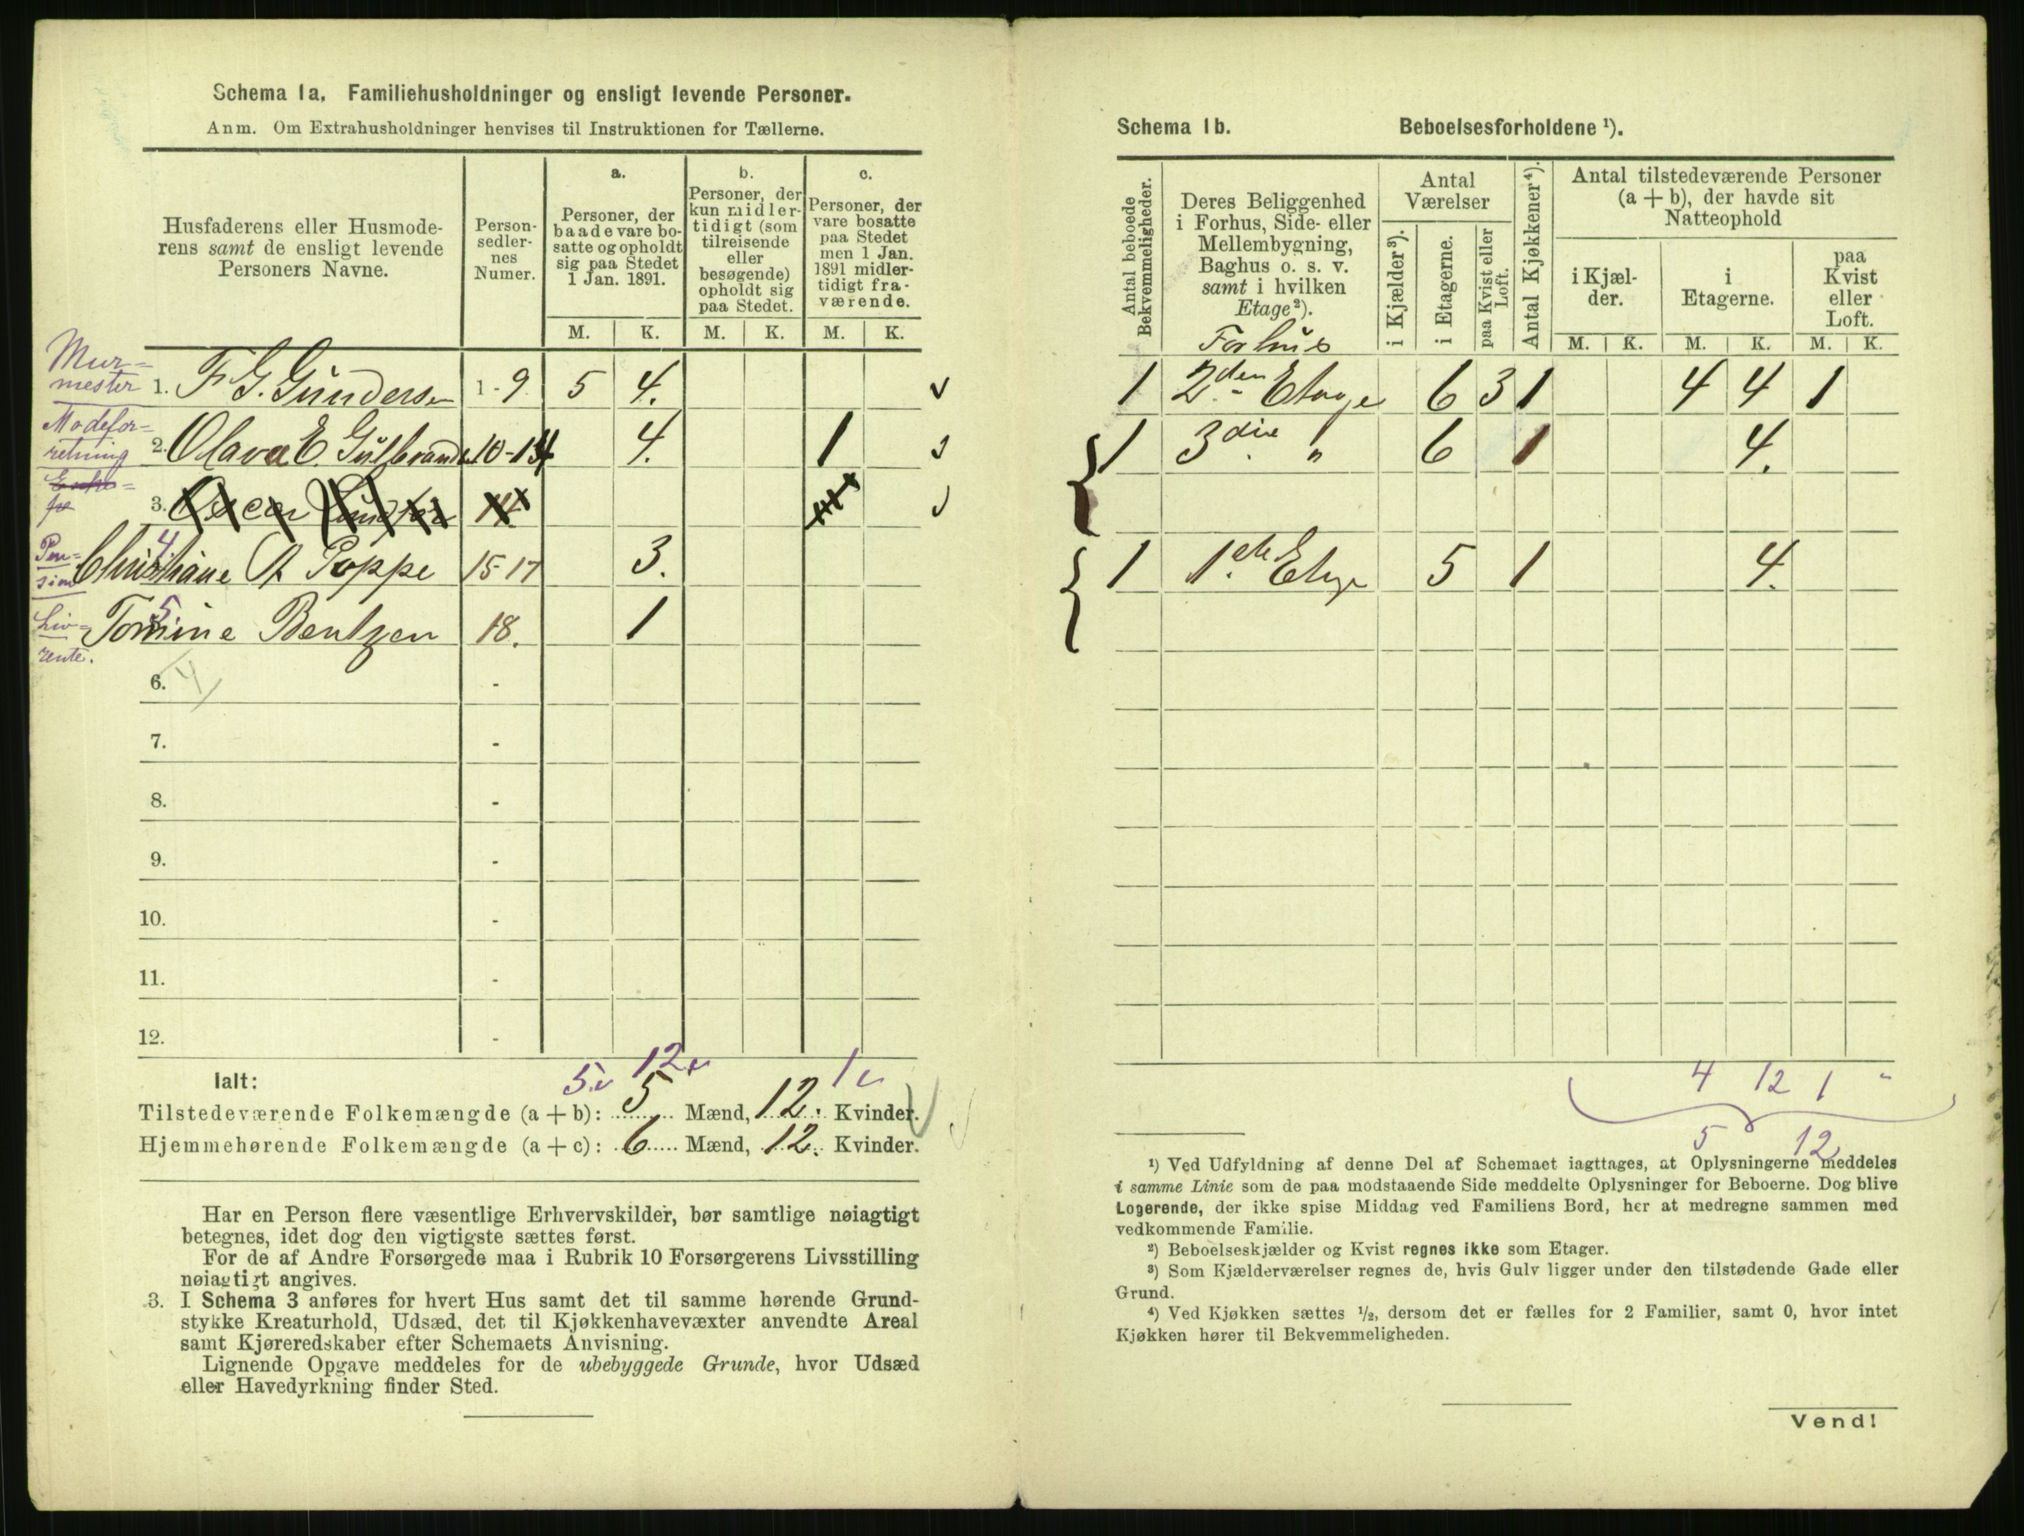 Schema 1a. Familiehusholdninger og ensligt levende Personer.
Anm. Om Extrahusholdninger henvises til Instruktionen for Tællerne.
Husfaderens eller Husmoderens samt de ensligt levende Personers Navne.
Person-sedlernes Numer.
a.
Personer, der baade vare bosatte og opholdt sig paa Stedet 1 Jan. 1891.
b.
Personer, der kun midlertidigt (som tilreisende eller besøgende) opholdt sig paa Stedet.
c.
Personer, der vare bosatte paa Stedet men 1 Jan. 1891 midlertidigt fraværende.
M. K. M. K. M. K.
Murmester 1. F. G. Gundersen 1-9 5 4.
Modeforretning 2. Olava E. Gulbrands 10-14 4. 1
3. 14
Pension 4. Christiane Poppe 15-17 3.
Livrente. 5. Tomine Bentzen 18. 1
6. - 4
7. -
8. -
9. -
10. -
11. -
12. -
5. 12. 1
Ialt:
Tilstedeværende Folkemængde (a + b): 5 Mænd, 12. Kvinder.
Hjemmehørende Folkemængde (a + c): 6 Mænd, 12. Kvinder.
Har en Person flere væsentlige Erhvervskilder, bør samtlige nøiagtigt
betegnes, idet dog den vigtigste sættes først.
For de af Andre Forsørgede maa i Rubrik 10 Forsørgerens Livsstilling
nøiagtigt angives.
3. I Schema 3 anføres for hvert Hus samt det til samme hørende Grund-
stykke Kreaturhold, Udsæd, det til Kjøkkenhavevæxter anvendte Areal
samt Kjøreredskaber efter Schemaets Anvisning.
Lignende Opgave meddeles for de ubebyggede Grunde, hvor Udsæd
eller Havedyrkning finder Sted.
Schema 1b. Beboelsesforholdene ¹).
Antal beboede Bekvemmeligheder.
Deres Beliggenhed i Forhus, Side- eller Mellembygning, Baghus o. s. v. samt i hvilken Etage²).
Antal Værelser
i Kjælder³).
i Etagerne.
paa Kvist eller Loft.
Antal Kjøkkener⁴).
Antal tilstedeværende Personer (a + b), der havde sit Natteophold
i Kjælder.
i Etagerne.
paa Kvist eller Loft.
M. K. M. K. M. K.
Forhus
1 2den Etage 6 3 1 4 4 1
1 3die " 6 1 4.
1 1ste Etage 5 1 4.
4 12 1 "
5 12
¹) Ved Udfyldning af denne Del af Schemaet iagttages, at Oplysningerne meddeles
i samme Linie som de paa modstaaende Side meddelte Oplysninger for Beboerne. Dog blive
Logerende, der ikke spise Middag ved Familiens Bord, her at medregne sammen med
vedkommende Familie.
²) Beboelseskjælder og Kvist regnes ikke som Etager.
³) Som Kjælderværelser regnes de, hvis Gulv ligger under den tilstødende Gade eller
Grund.
⁴) Ved Kjøkken sættes ½, dersom det er fælles for 2 Familier, samt 0, hvor intet
Kjøkken hører til Bekvemmeligheden.
Vend!